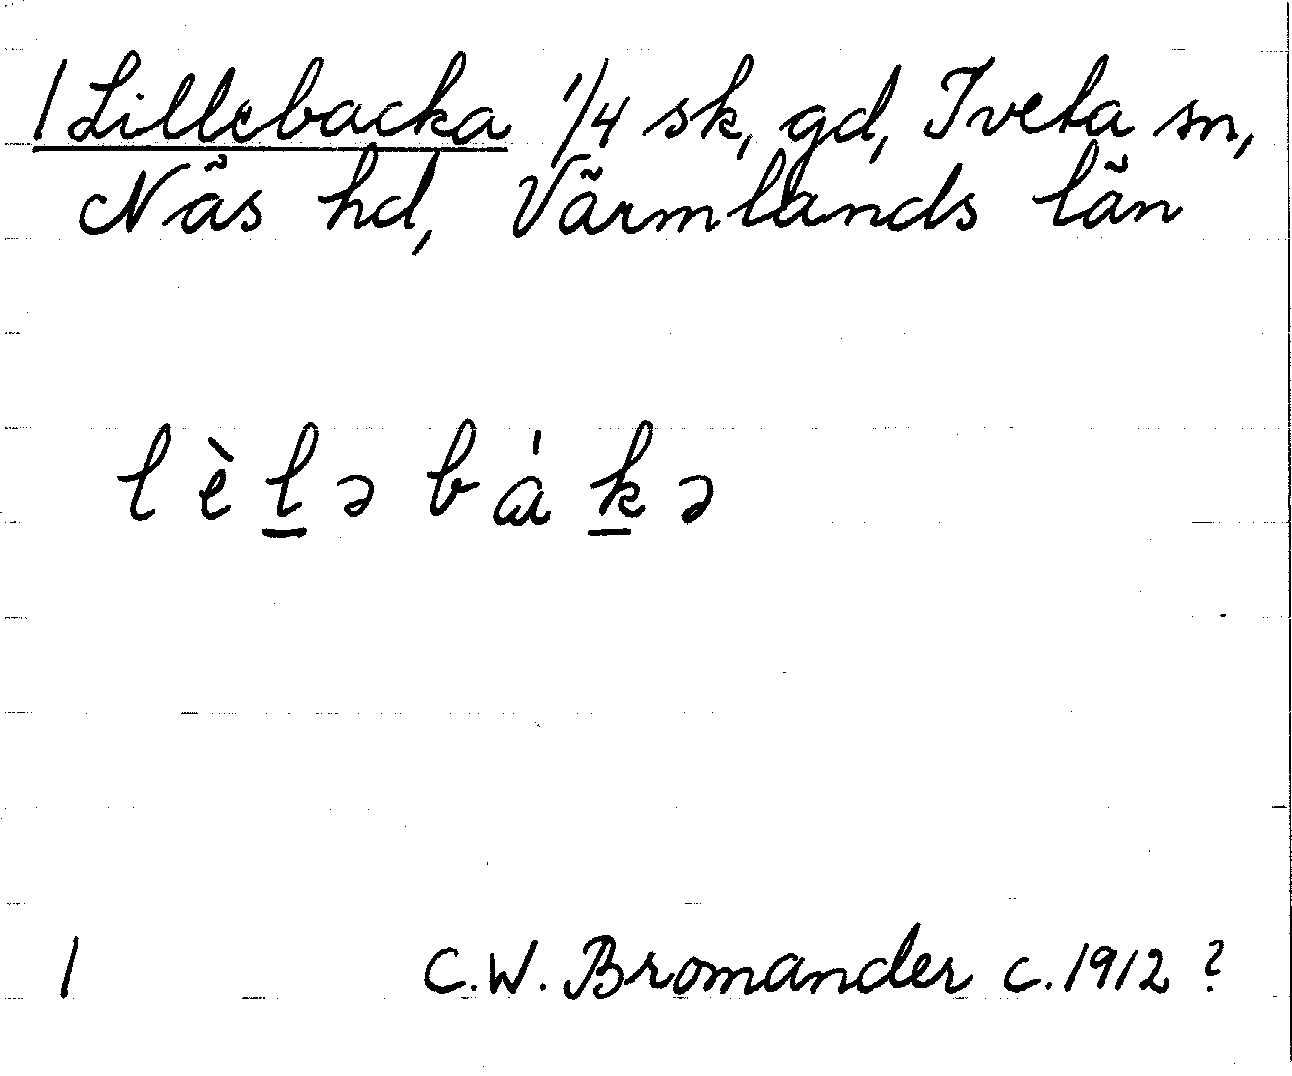 1 Lillebacka 1/4 sk, gd, Tveta sn,
Näs hd, Värmlands län
l è l̲ ə b á k̲ ə
1 C.W. Bromander c. 1912 ?